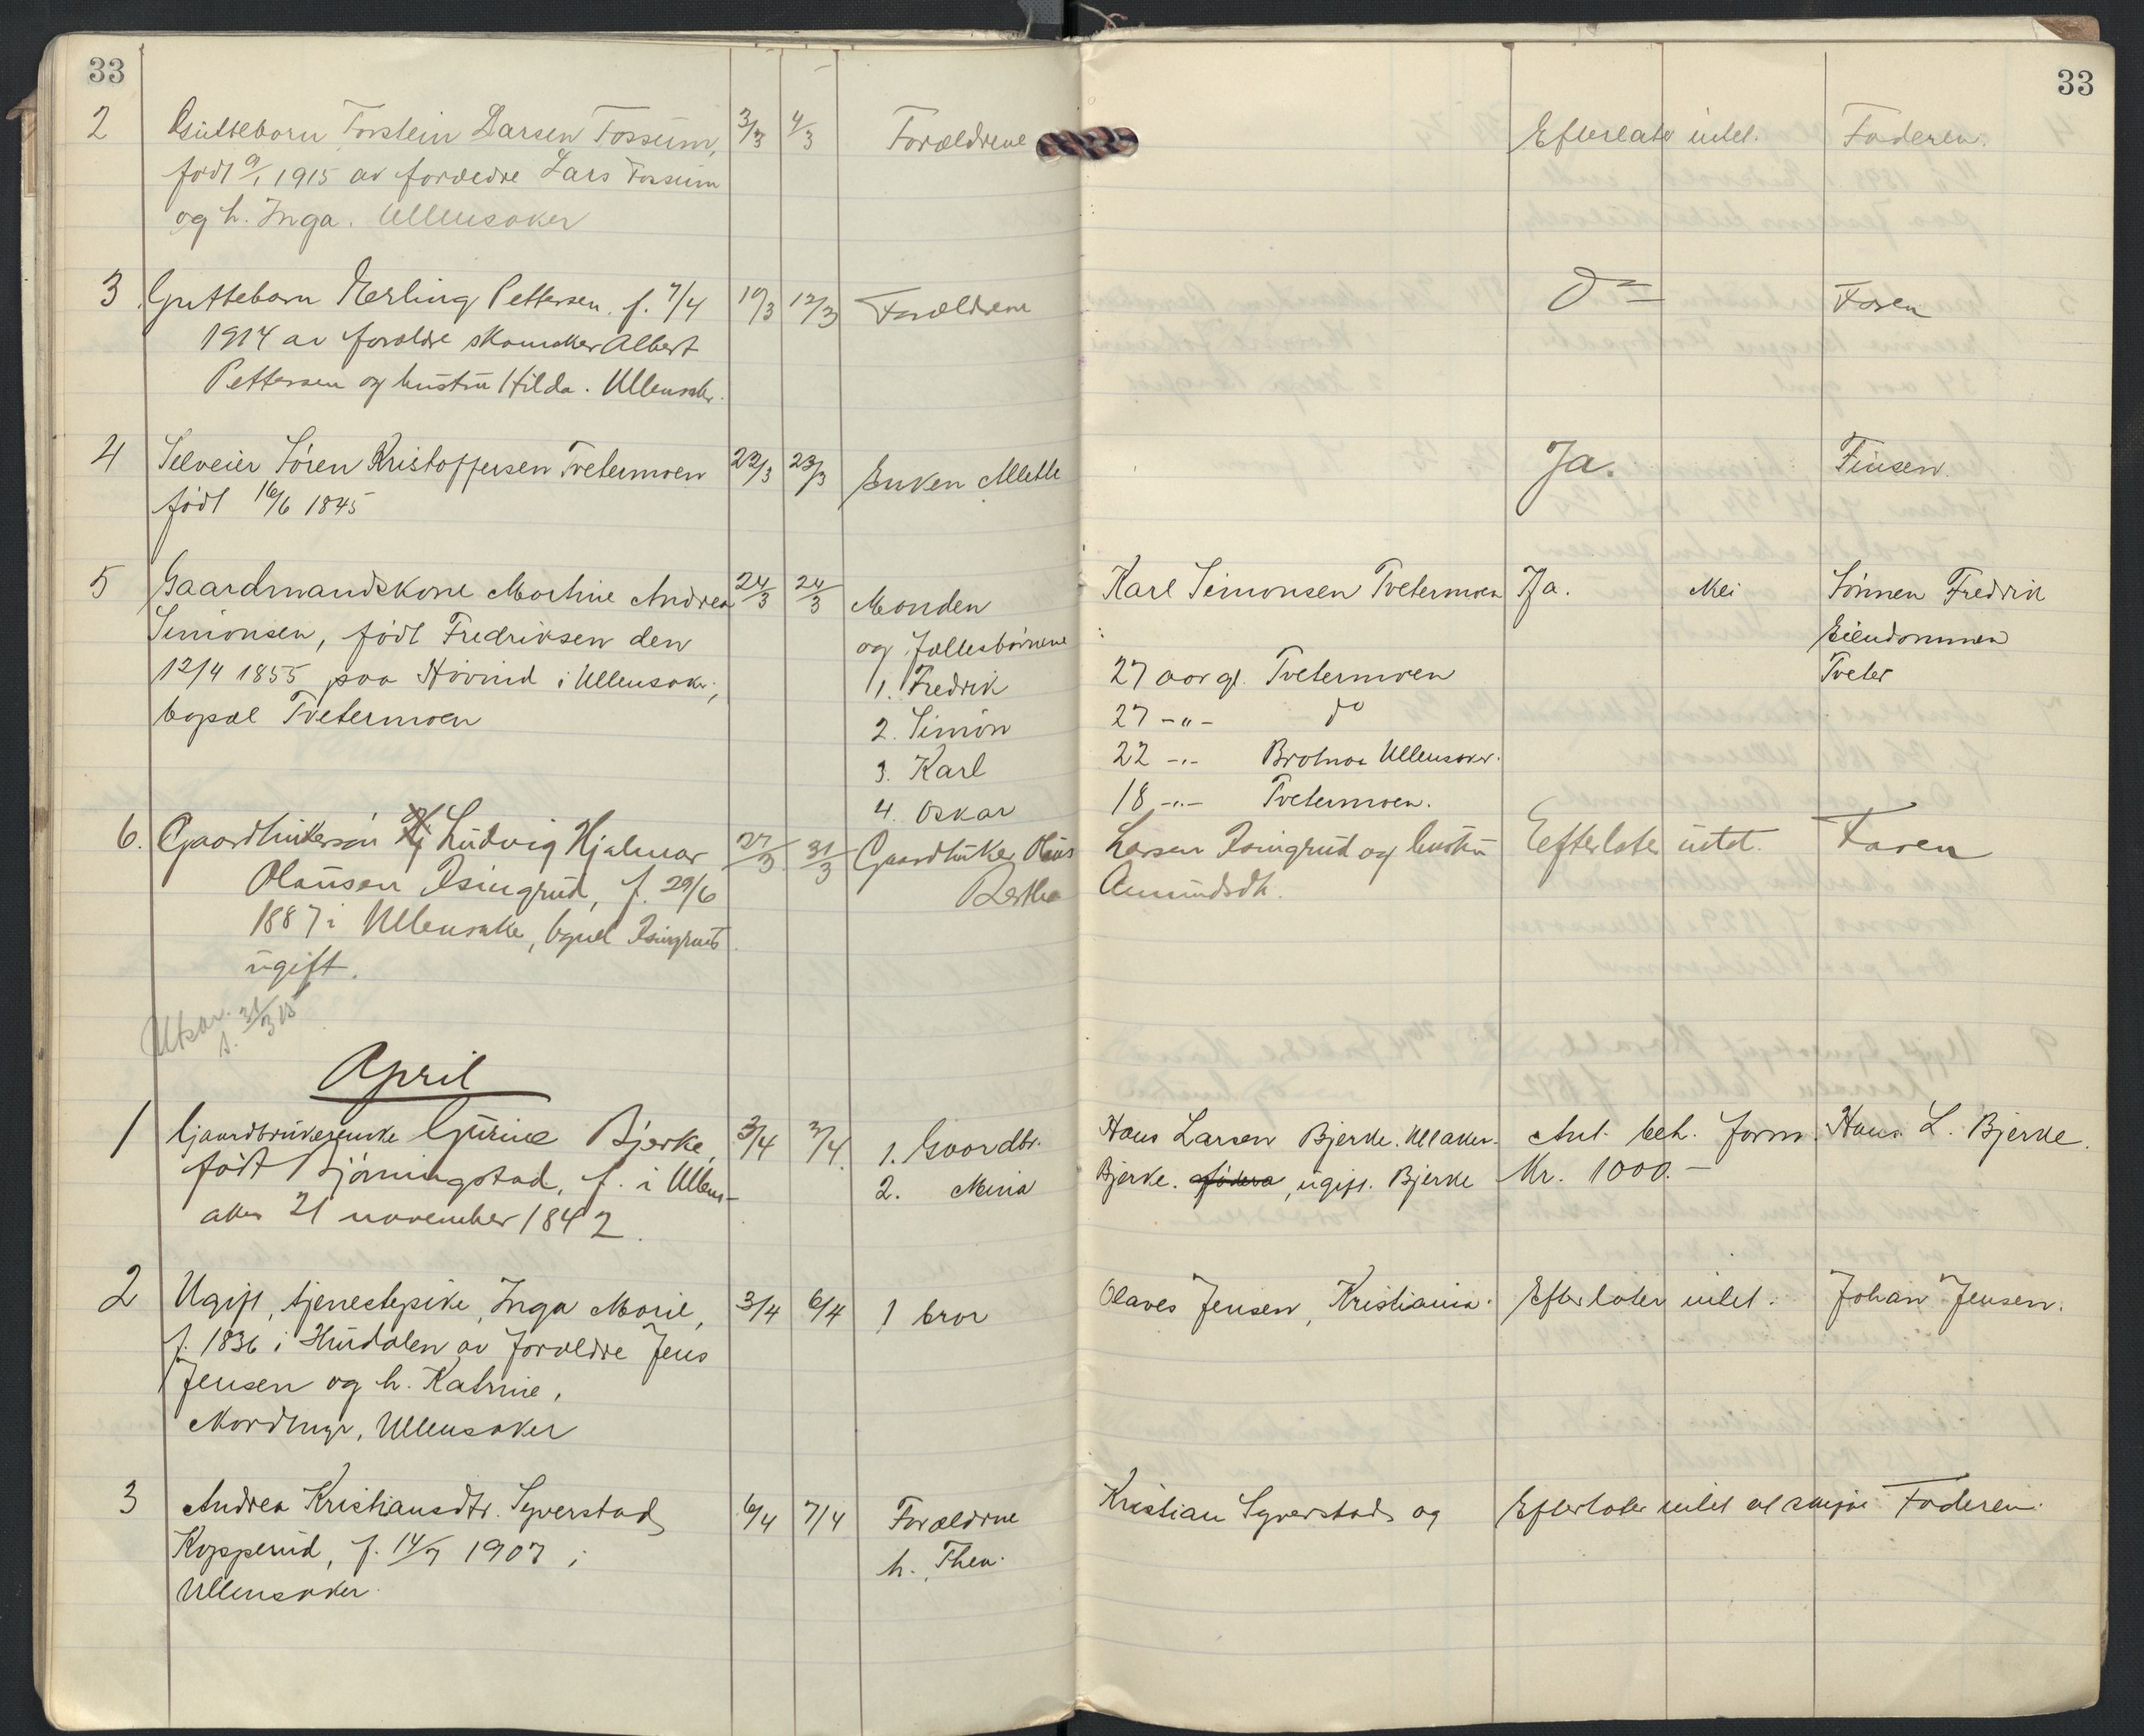 33 33
2 Gutteborn Torstein Larsen Fossum, 3/3 4/3 Forældrene Efterlater intet. Faderen.
født 9/1 1915 av forældre Lars Fossum
og h. Inga. Ullensaker
3 Guttebarn Erling Pettersen. f. 7/4 10/3 12/3 Forældrene Do Faren
1914 av forældre skomaker Albert
Pettersen og hustru Hilda. Ullensaker.
4 Selveier Søren Kristoffersen Tvetermoen 22/3 23/3 Enken Mette Ja.
født 16/6 1845
5 Gaardmandskone Martine Andrea 24/3 24/3 Manden Karl Simonsen Tvetermoen Ja. Nei Sønnen Fredrik
Simonsen, født Fredriksen den og fællesbørnene Eiendommen
12/4 1855 paa Høvind i Ullensak:, 1. Fredrik 27 aar gl. Tvetermoen Tveter
bopæl Tvetermoen 2. Simon 27 -"- do
3. Karl 22 -"- Ullensaker.
4. Oskar 18 -"- Tvetermoen.
6. Gaardbrukersøn Hj Ludvig Hjalmar 27/3 31/3 Gaardbruker Hans Larsen Isingrud og hustru Efterlater intet. Faren
Olausen Isingrud, f. 29/6 Amundsdt.
1887 i Ullensaker, bopæl Isingrud
ugift.
31/3 15
April
1 Gaardbrukerenke Gurine Bjerke, 3/4 3/4 1. Gaardbr. Hans Larsen Bjerke. Ullaker. Ant. beh. form. Hans L. Bjerke.
født Bjørningstad, f. i Ullens- 2. Mina Bjerke. , ugift. Bjerke Kr. 1000.-
aker 21 november 1842.
2 Ugift, tjenestepike, Inga Marie, 3/4 6/4 1 bror Olaves Jensen, Kristiania. Efterlater intet. Johan Jensen.
f. 1836 i Hurdalen av forældre Jens
Jensen og h. Katrine,
Nordmyr, Ullensaker
3 Andrea Kristiansdtr. Syverstad 6/4 7/4 Forældrene Kristian Syverstad og Efterlater intet at skifte Faderen.
Kopperud, f. 14/7 1907 i h. Thea.
Ullensaker.